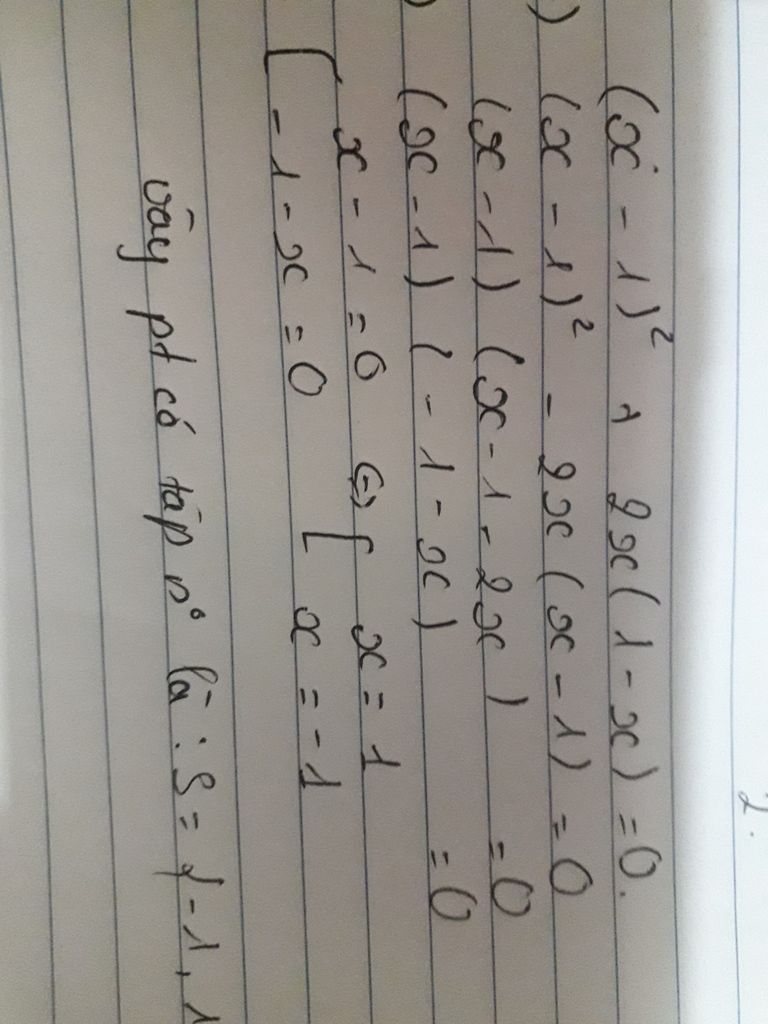 (x - 1)² + 2x(1 - x) = 0.
) (x - 1)² - 2x(x - 1) = 0
(x - 1) (x - 1 - 2x) = 0
) (x - 1) (- 1 - x) = 0
[ x - 1 = 0 (=) [ x = 1
- 1 - x = 0 x = - 1
vây pt có tâp n° là : S = {-1, 1